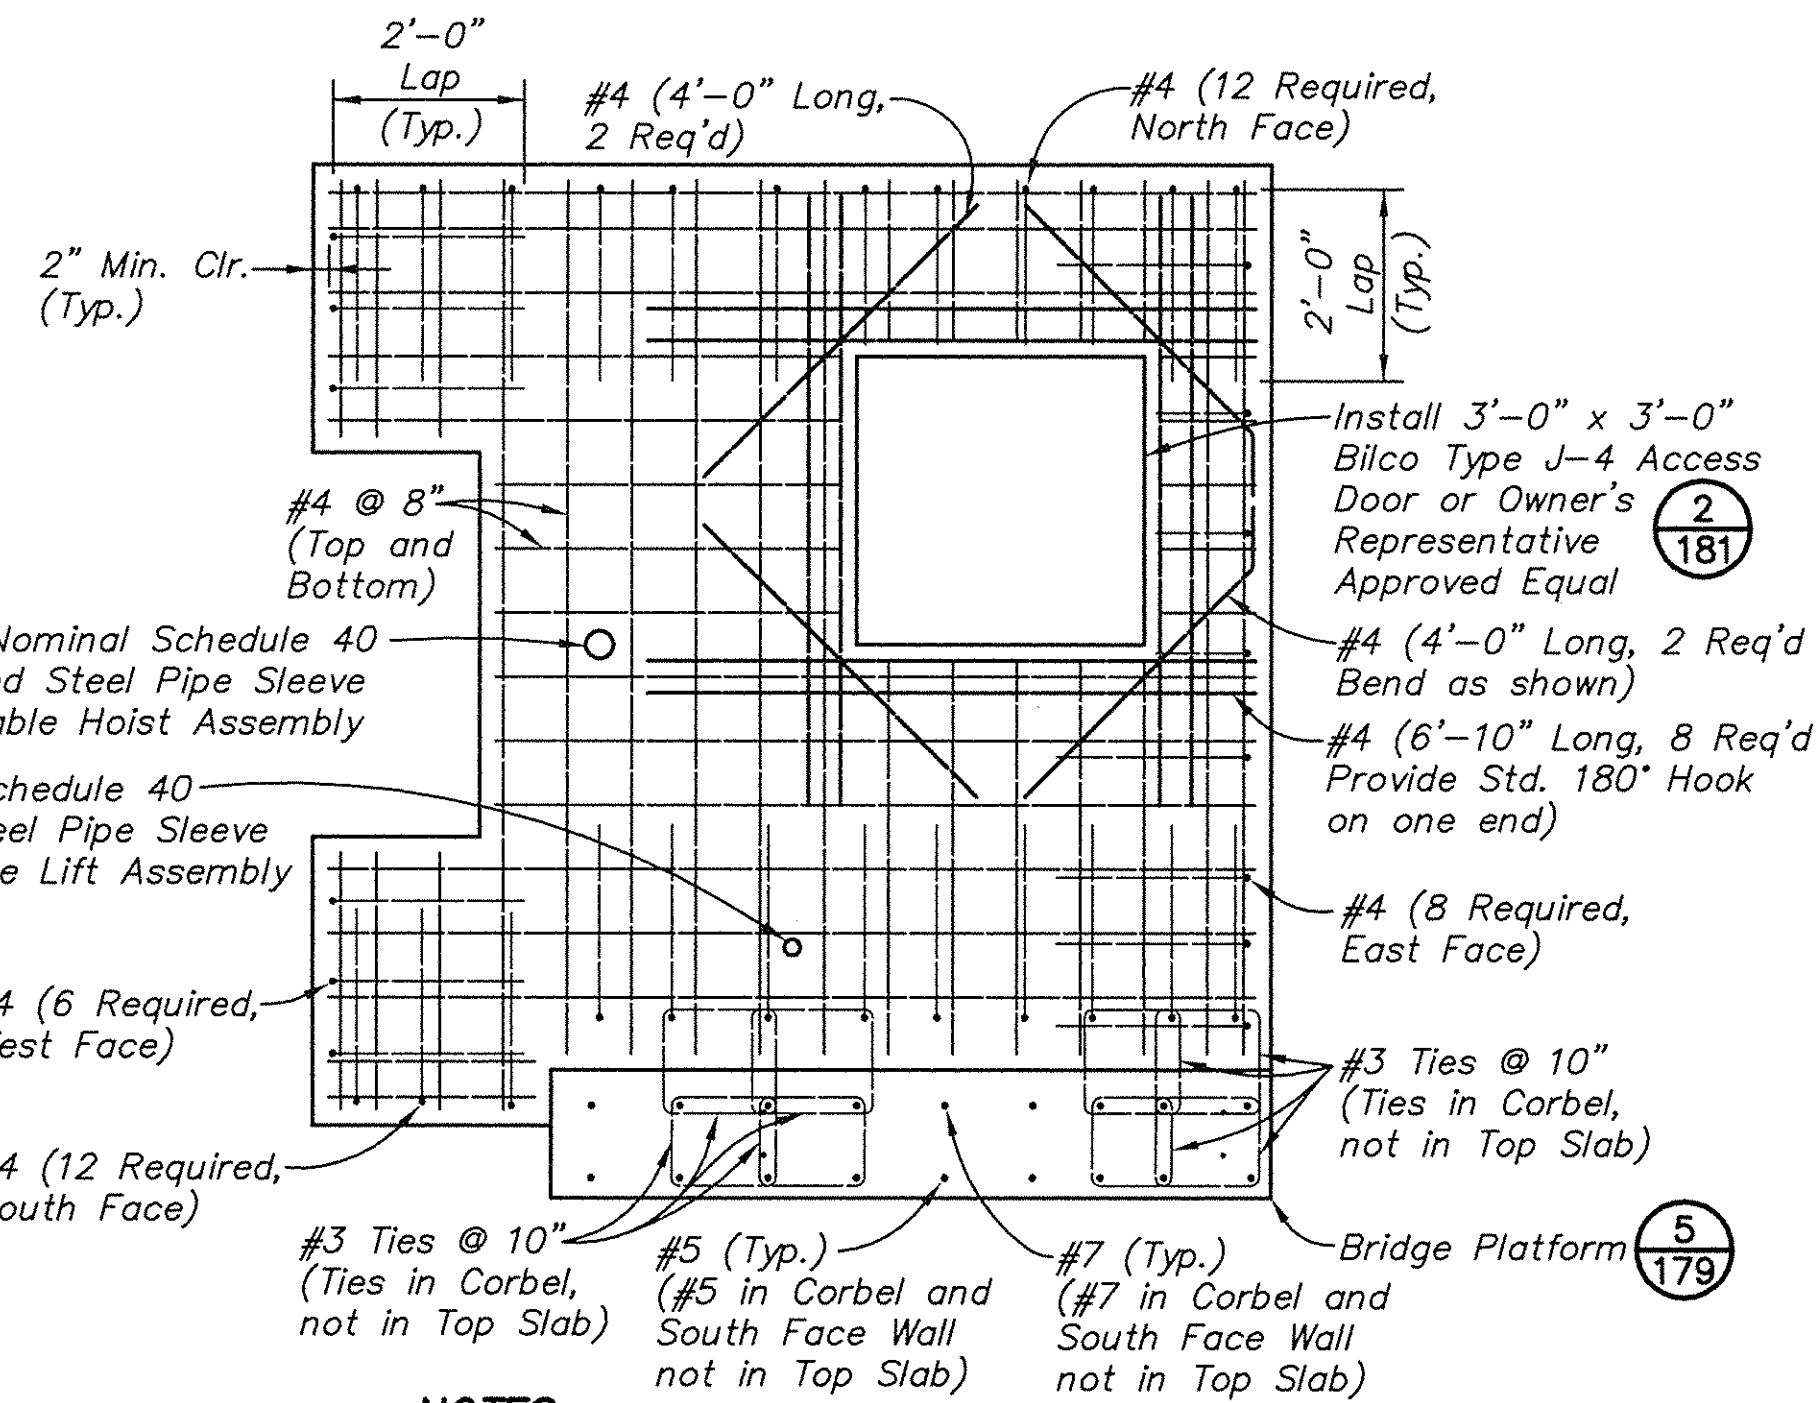 2'-0"
Lap
(Typ.)
#4 (4'-0" Long,
2 Req'd)
#4 (12 Required,
North Face)
2" Min. Clr.
(Typ.)
2'-0"
Lap
(Typ.)
Install 3'-0" x 3'-0"
Bilco Type J-4 Access
Door or Owner's
Representative
Approved Equal
2
181
#4 @ 8"
(Top and
Bottom)
Nominal Schedule 40
Steel Pipe Sleeve
Hoist Assembly
#4 (4'-0" Long, 2 Req'd
Bend as shown)
#4 (6'-10" Long, 8 Req'd
Provide Std. 180° Hook
on one end)
40
Pipe Sleeve
Lift Assembly
#4 (8 Required,
East Face)
4 (6 Required,
Face)
#3 Ties @ 10"
(Ties in Corbel,
not in Top Slab)
4 (12 Required,
Face)
#3 Ties @ 10"
(Ties in Corbel,
not in Top Slab)
#5 (Typ.)
(#5 in Corbel and
South Face Wall
not in Top Slab)
#7 (Typ.)
(#7 in Corbel and
South Face Wall
not in Top Slab)
Bridge Platform
5
179